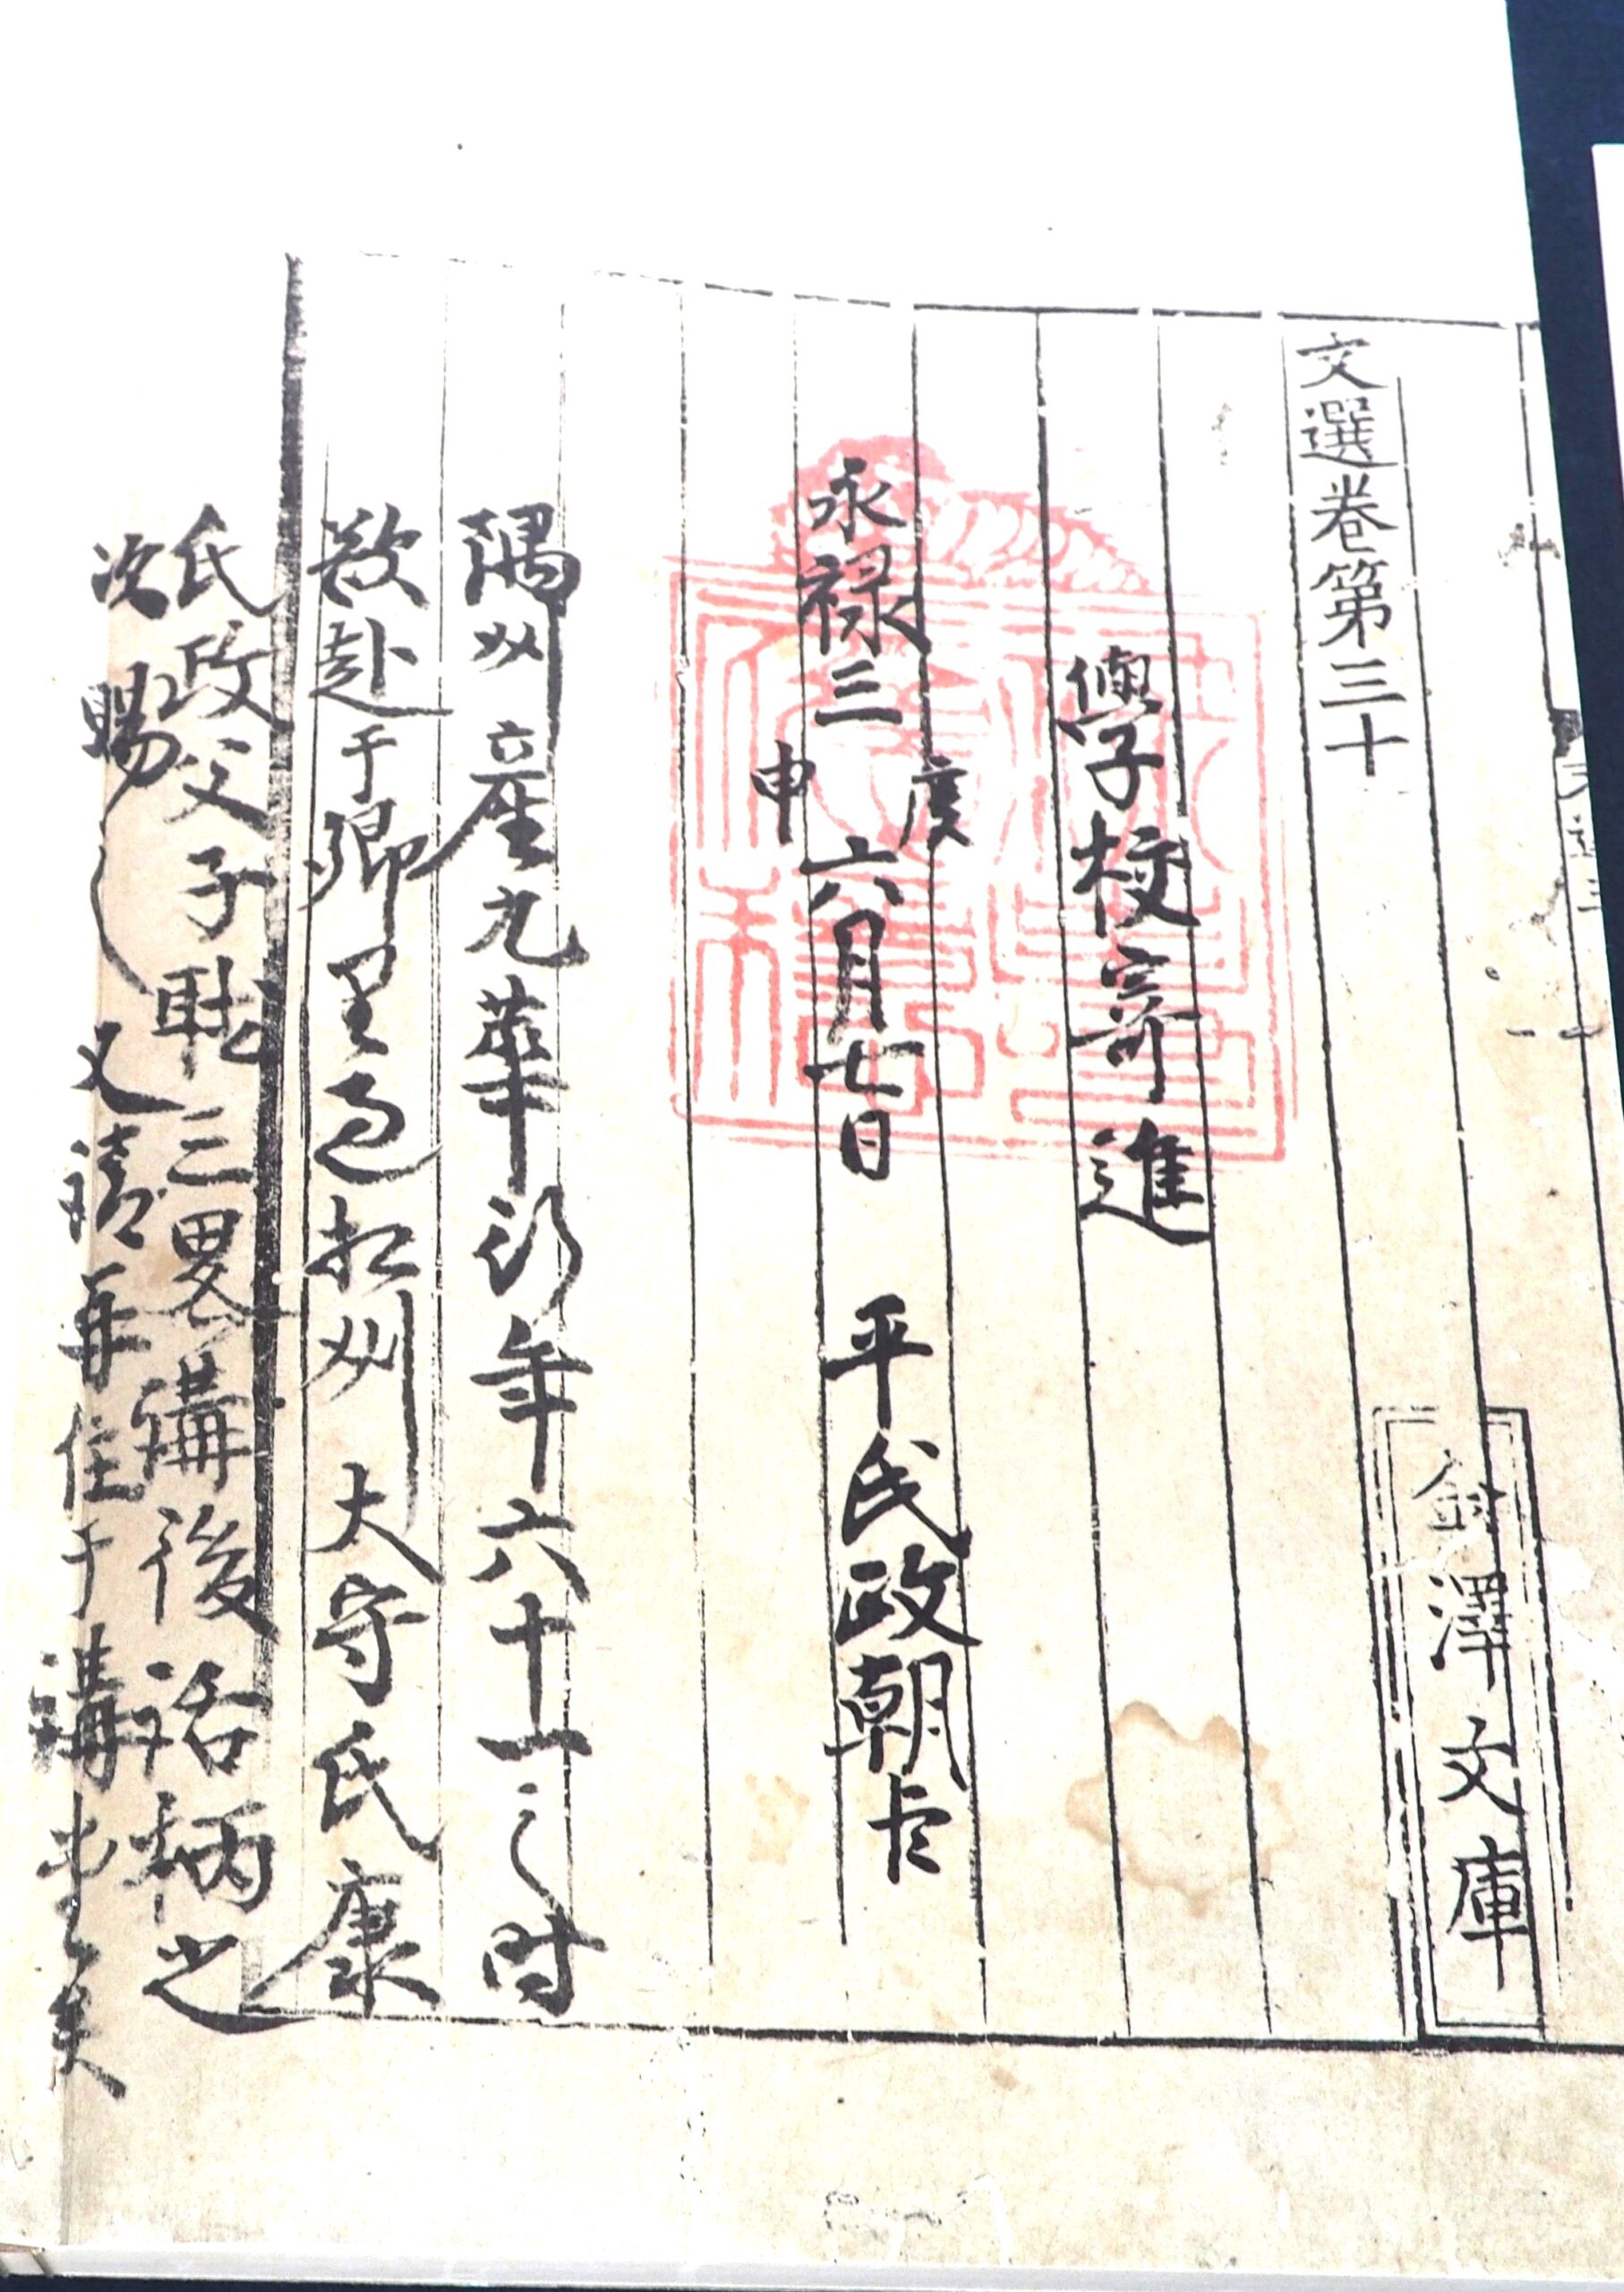 文選卷第三十
金澤文庫
學校寄進
永禄三庚申六月七日　平氏政朝臣
隅州産九華行年六十一之時
欲赴于郷里過相州大守氏康
氏政父子聴三畧講後話柄之
次賜之又請再住于講堂矣